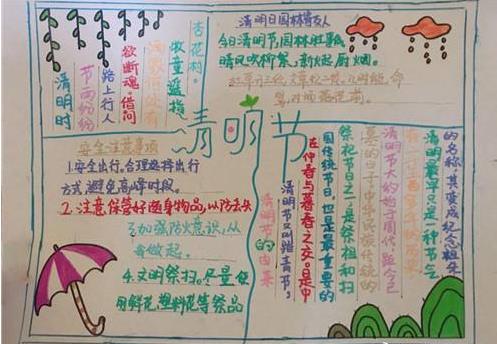 清明时
节雨纷纷
路上行人
欲断魂。借问
酒家何处有
牧童遥指
杏花村。
清明日园林寄友人
今日清明节园林胜事偏
晴风吹柳絮,新火起厨烟。
杜草开三径,文章忆二贤。几时能命
驾,对酒落花前。
清明节
安全注意事项
1.安全出行。合理选择出行
方式,避免高峰时段。
2.注意保管好随身物品,以防丢失
3.加强防火意识,从
我做起。
4.文明祭扫。尽量使
用鲜花,塑料花等祭品
清明节的由来
清明节又叫踏青节,
在仲春与暮春之交。是中
国传统节日,也是最重要的
祭祀节日之一,是祭祖和扫
墓的日子。中华民族传统的
清明节大约始于周代,距今已
有二千五百多年的历史。
清明最早只是一种节气
的名称,其变成纪念祖先